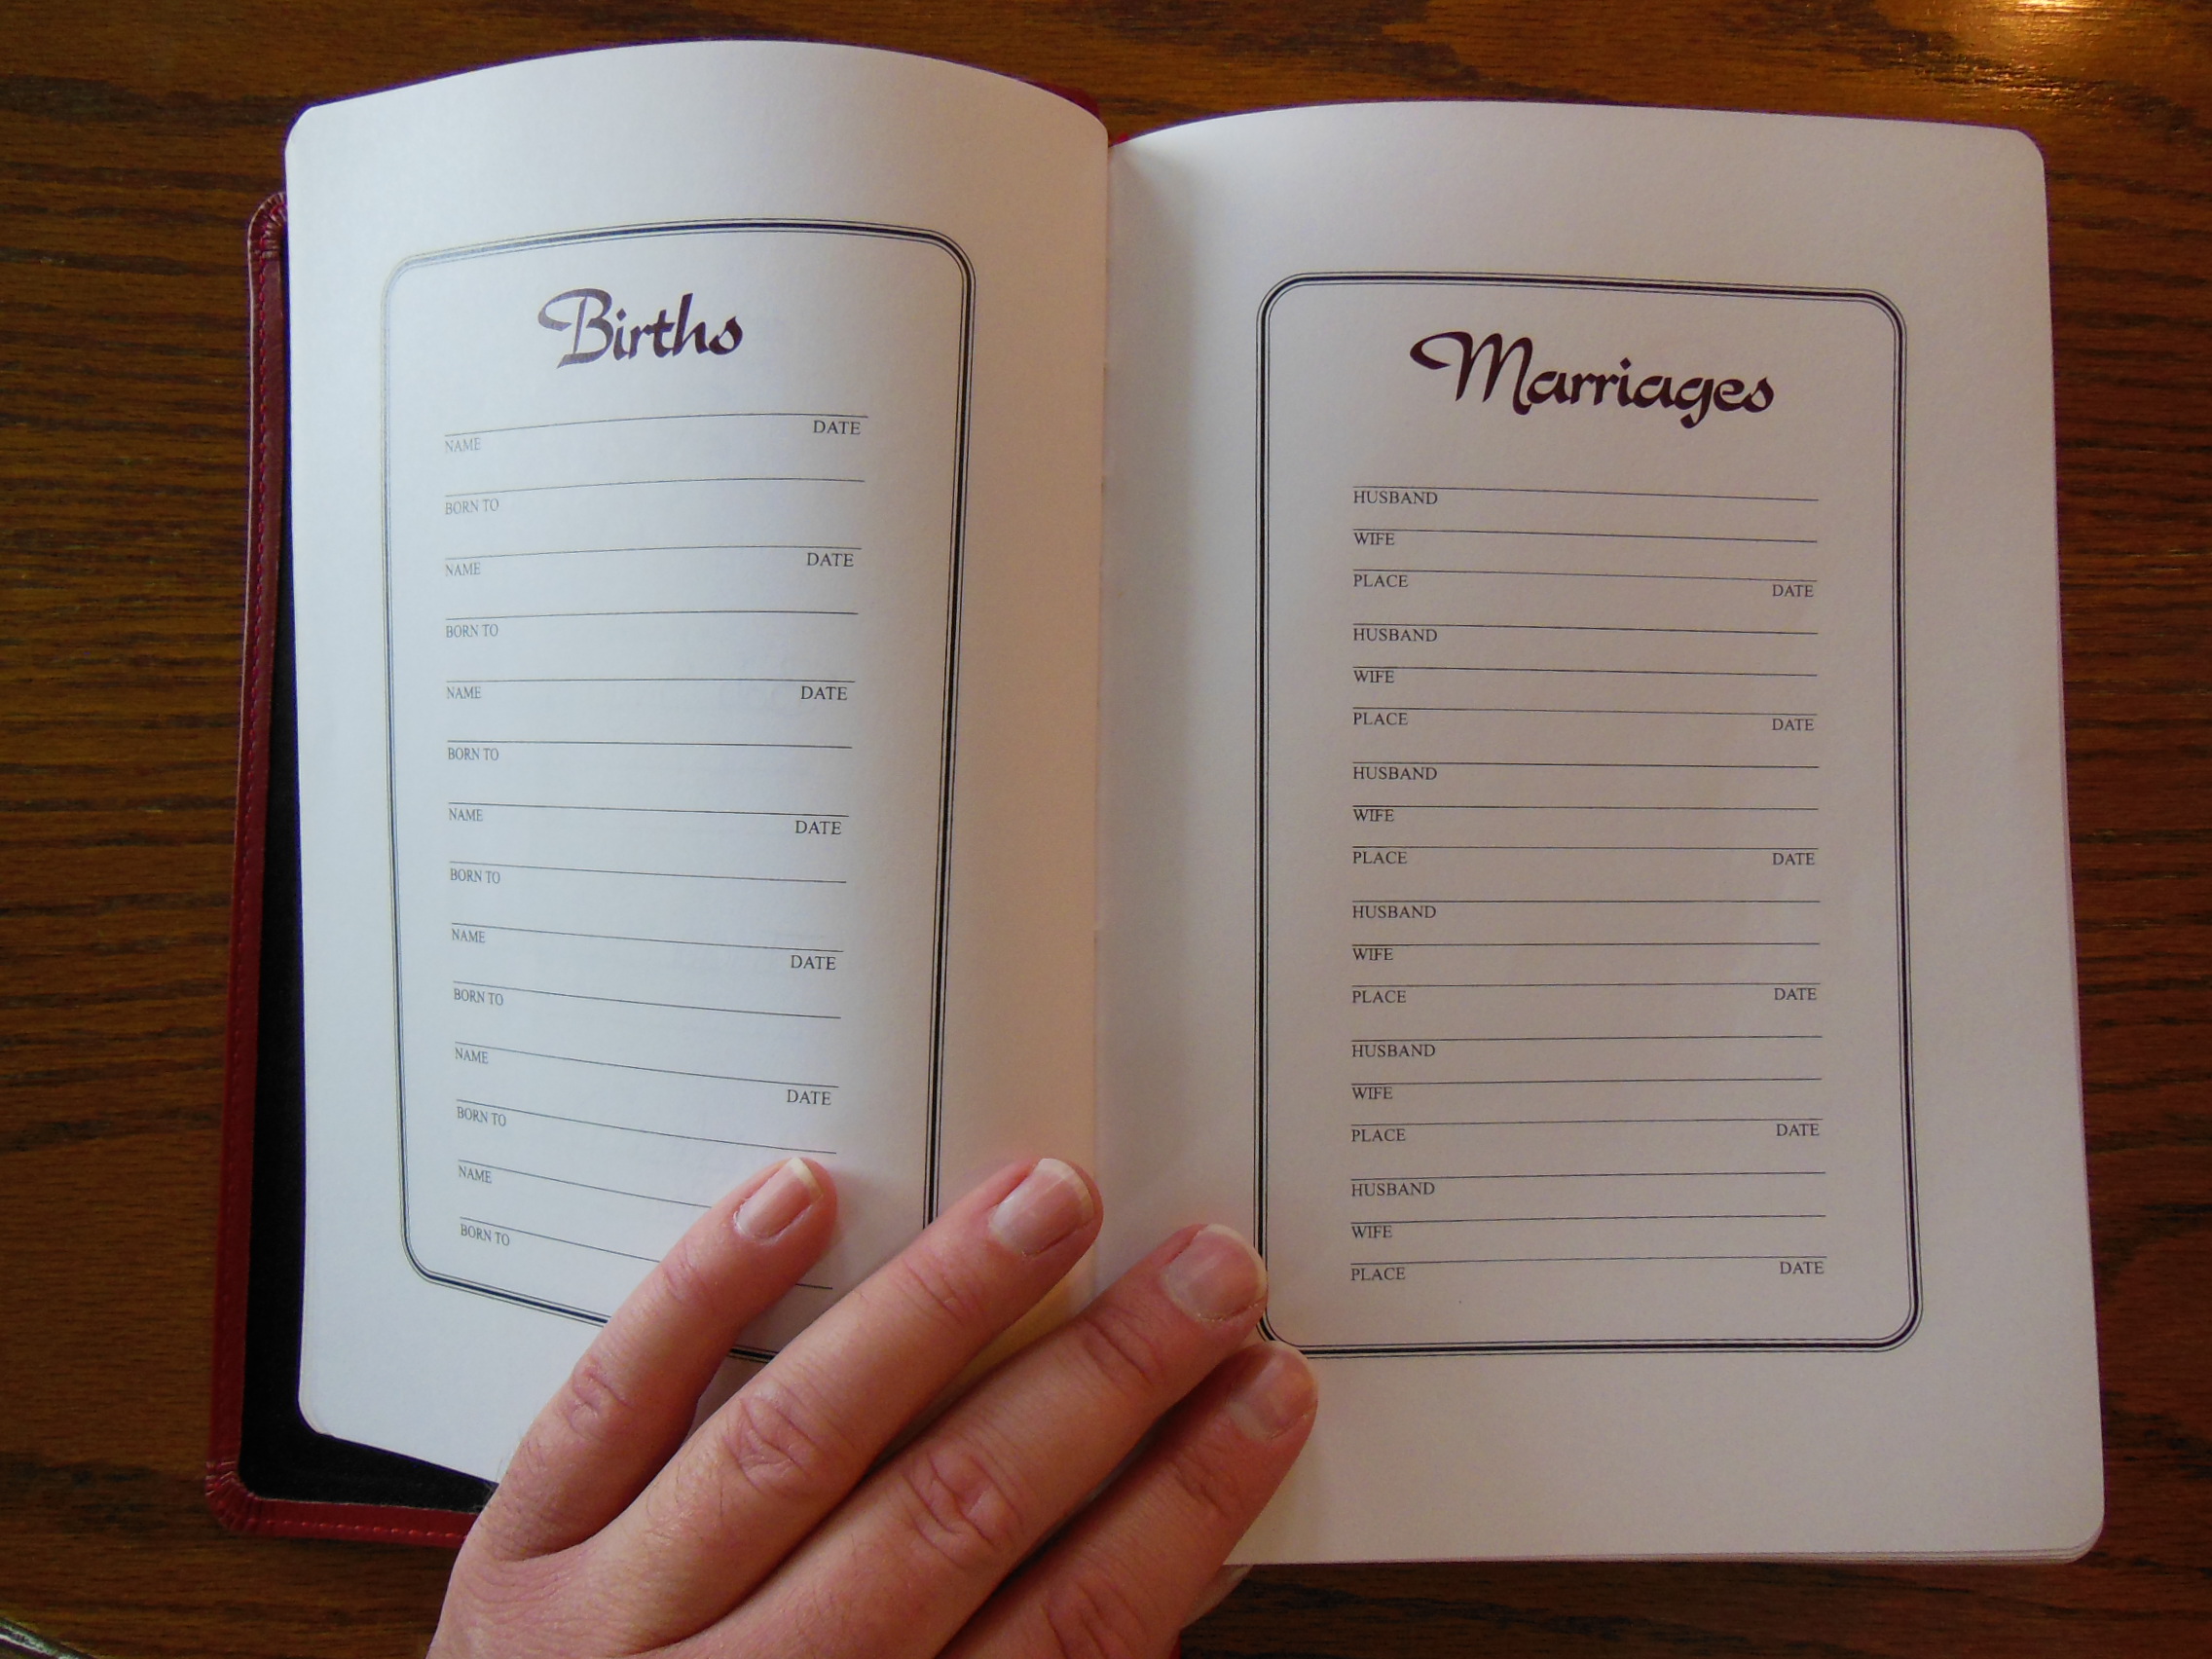 Births
NAME DATE
BORN TO
NAME DATE
BORN TO
NAME DATE
BORN TO
NAME DATE
BORN TO
NAME DATE
BORN TO
NAME DATE
BORN TO
NAME
BORN TO
Marriages
HUSBAND
WIFE
PLACE DATE
HUSBAND
WIFE
PLACE DATE
HUSBAND
WIFE
PLACE DATE
HUSBAND
WIFE
PLACE DATE
HUSBAND
WIFE
PLACE DATE
HUSBAND
WIFE
PLACE DATE